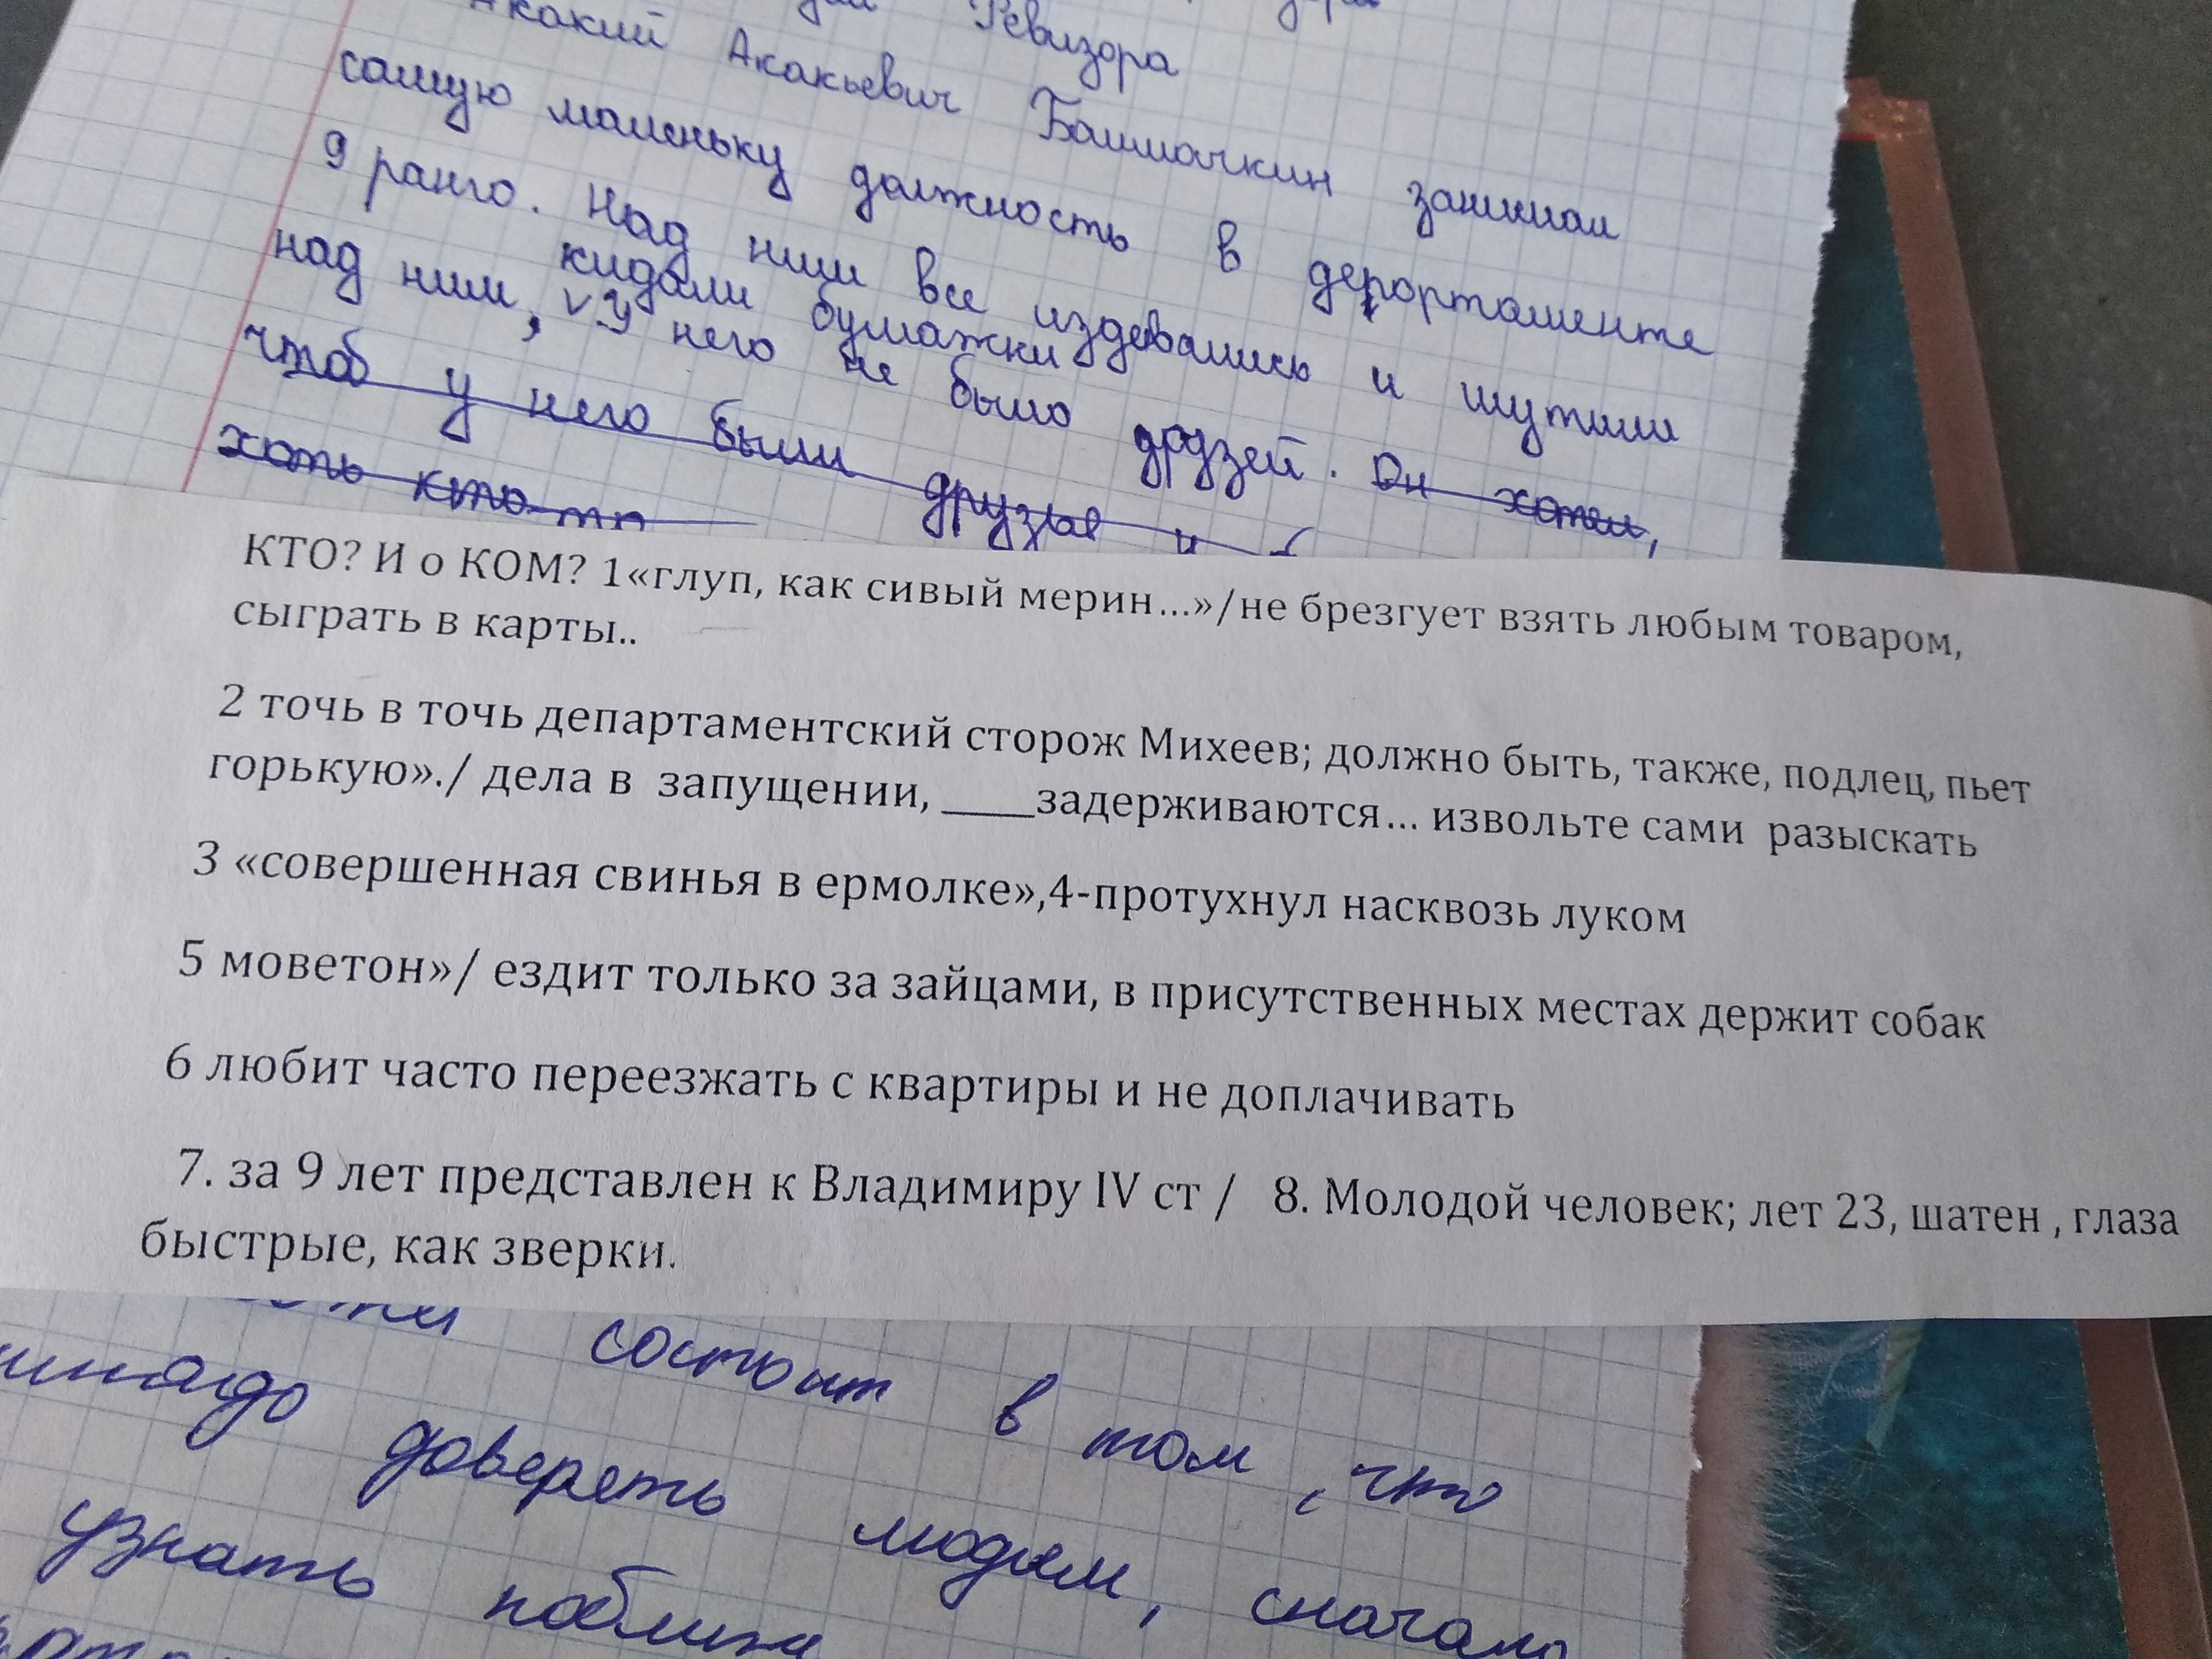 Ревизора
Акакий Акакьевич Башмачкин занимал
самую маленьку должность в департаменте
9 ранго. Над ним все издевались и шутили
кидали бумажки
над ним, V У него не было друзей. Он хотел,
чтоб у него были друзья и
хоть кто-то
КТО? И о КОМ? 1«глуп, как сивый мерин...»/не брезгует взять любым товаром,
сыграть в карты..
2 точь в точь департаментский сторож Михеев; должно быть, также, подлец, пьет
горькую»./ дела в запущении, ____задерживаются... извольте сами разыскать
3 «совершенная свинья в ермолке»,4-протухнул насквозь луком
5 моветон»/ ездит только за зайцами, в присутственных местах держит собак
6 любит часто переезжать с квартиры и не доплачивать
7. за 9 лет представлен к Владимиру IV ст / 8. Молодой человек; лет 23, шатен , глаза
быстрые, как зверки.
состоит в том, что
доверять людям, сначала
узнать поближе